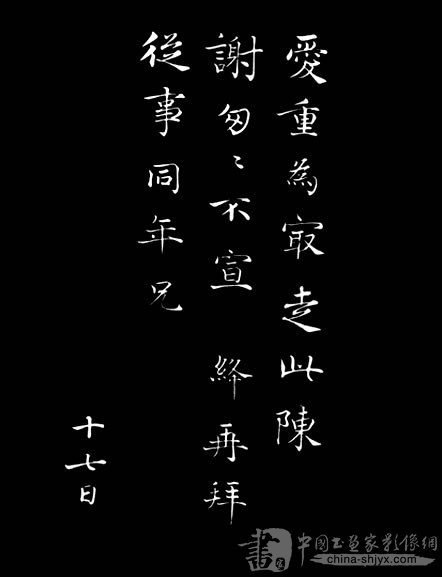 愛重為㝡走此陳
謝匆〻不宣 絳再拜
從事同年兄
十七日
書
中國书画家影像網
china-shjyx.com